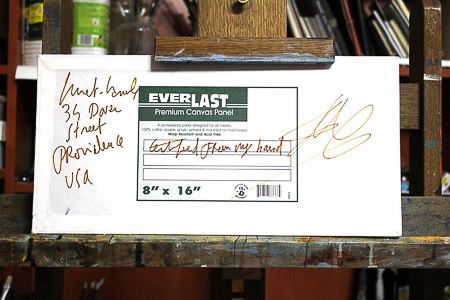 34 Dover
Street
Providence
USA
EVERLAST
Premium Canvas Panel
A professional panel designed for all media.
100% cotton double acrylic primed & mounted on hard board.
Warp Resistant and Acid Free
from my hand
8" x 16"